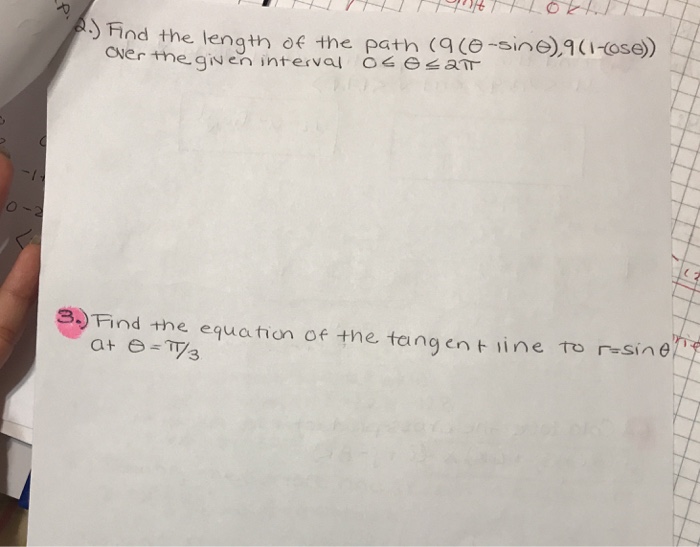 2.) Find the length of the path (9(θ-sinθ),9(1-cosθ))
over the given interval 0≤θ≤2π
-1
0-2
3.) Find the equation of the tangent line to r=sinθ
at θ=π/3